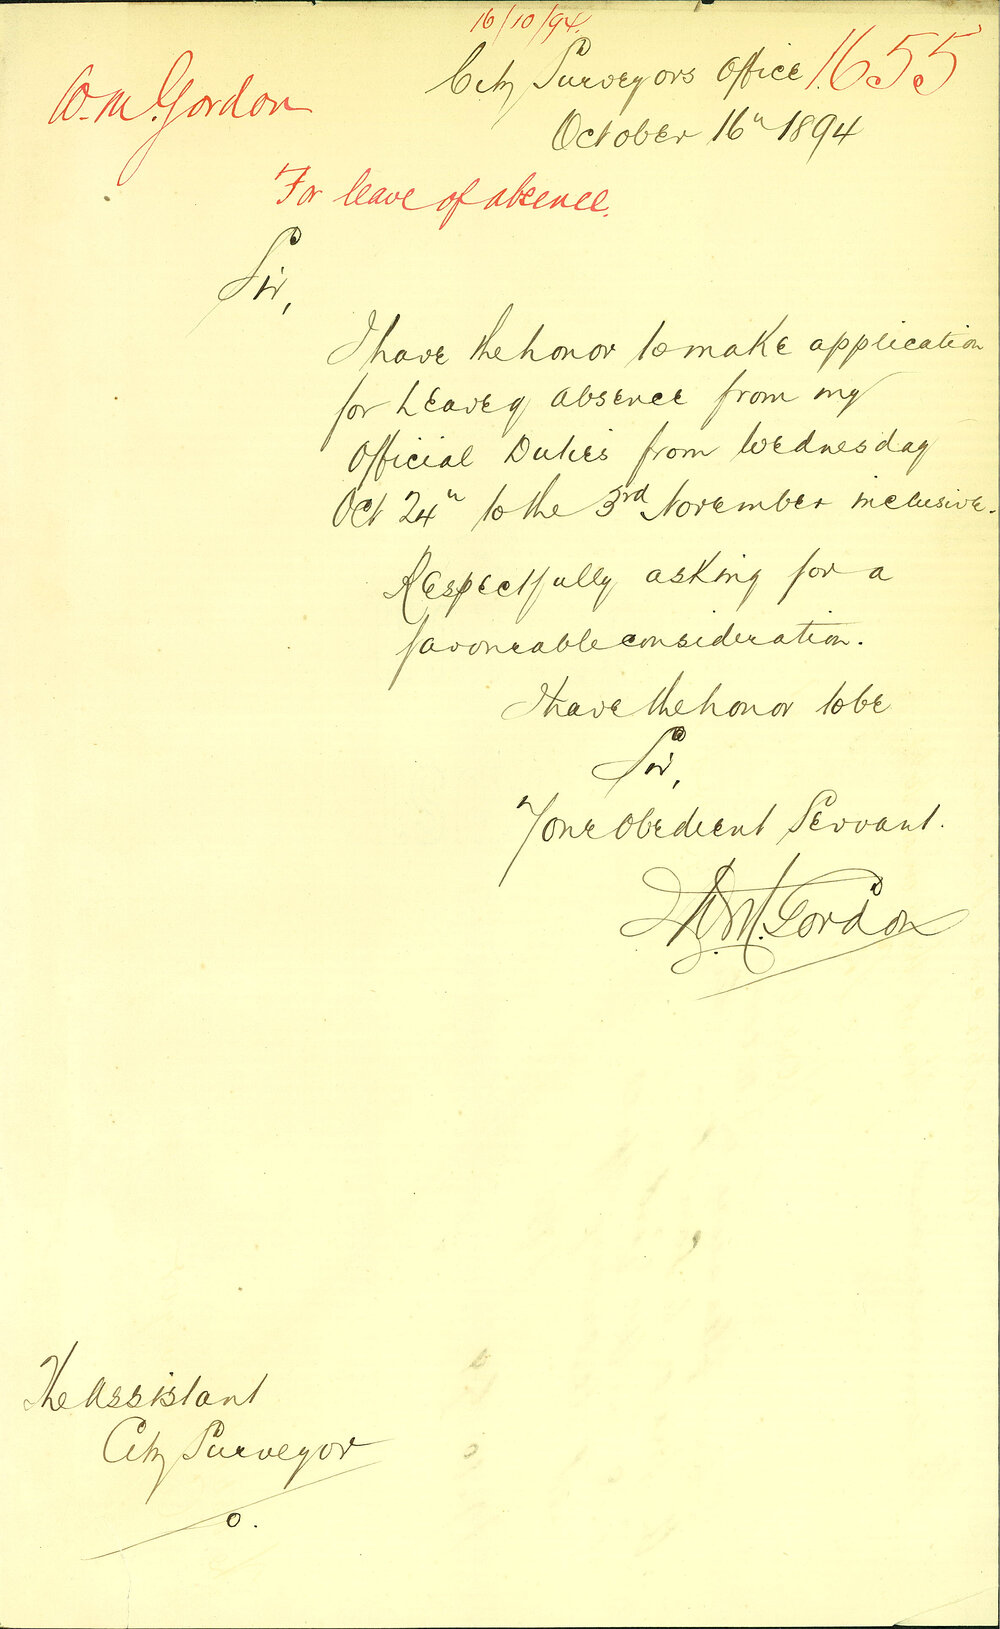 16/10/94.
City Surveyors Office 1655
W. M. Gordon
October 16" 1894
For leave of absence.
Sir,
I have the honor to make application
for Leave of absence from my
Official Duties from Wednesday
Oct 24" to the 3rd November inclusive.
Respectfully asking for a
favourable consideration.
I have the honor to be
Sir,
Your Obedient Servant.
W. M. Gordon
The Assistant
City Surveyor